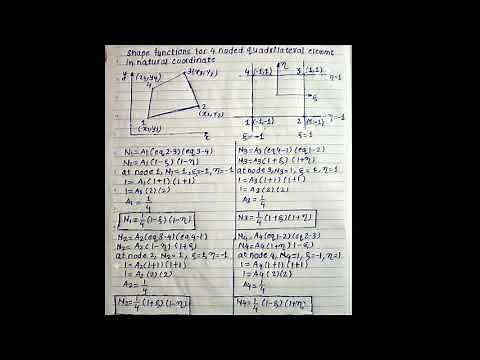 Shape functions for 4 noded quadrilateral element
in natural coordinate
y
(x4,y4)
3(x3,y3)
4
1
(x1,y1)
2
(x2,y2)
x
η
4 (-1,1)
3 (1,1)
η=1
ξ
1 (-1,-1)
2 (1,-1)
η=-1
ξ=-1
ξ=1
N1=A1(eq 2-3)(eq 3-4)
N1=A1(1-ξ)(1-η)
at node 1, N1=1, ξ=-1, η=-1
1=A1(1+1)(1+1)
1=A1(2)(2)
A1=1/4
N1=1/4(1-ξ)(1-η)
N2=A2(eq 3-4)(eq 4-1)
N2=A2(1-η)(1+ξ)
at node 2, N2=1, ξ=1, η=-1
1=A2(1+1)(1+1)
1=A2(2)(2)
A2=1/4
N2=1/4(1+ξ)(1-η)
N3=A3(eq 4-1)(eq 1-2)
N3=A3(1+ξ)(1+η)
at node 3, N3=1, ξ=1, η=1
1=A3(1+1)(1+1)
1=A3(2)(2)
=1/4
N3=1/4(1+ξ)(1+η)
N4=A4(eq 1-2)(eq 2-3)
N4=A4(1+η)(1-ξ)
at node 4, N4=1, ξ=-1, η=1
1=A4(1+1)(1+1)
1=A4(2)(2)
A4=1/4
N4=1/4(1-ξ)(1+η)